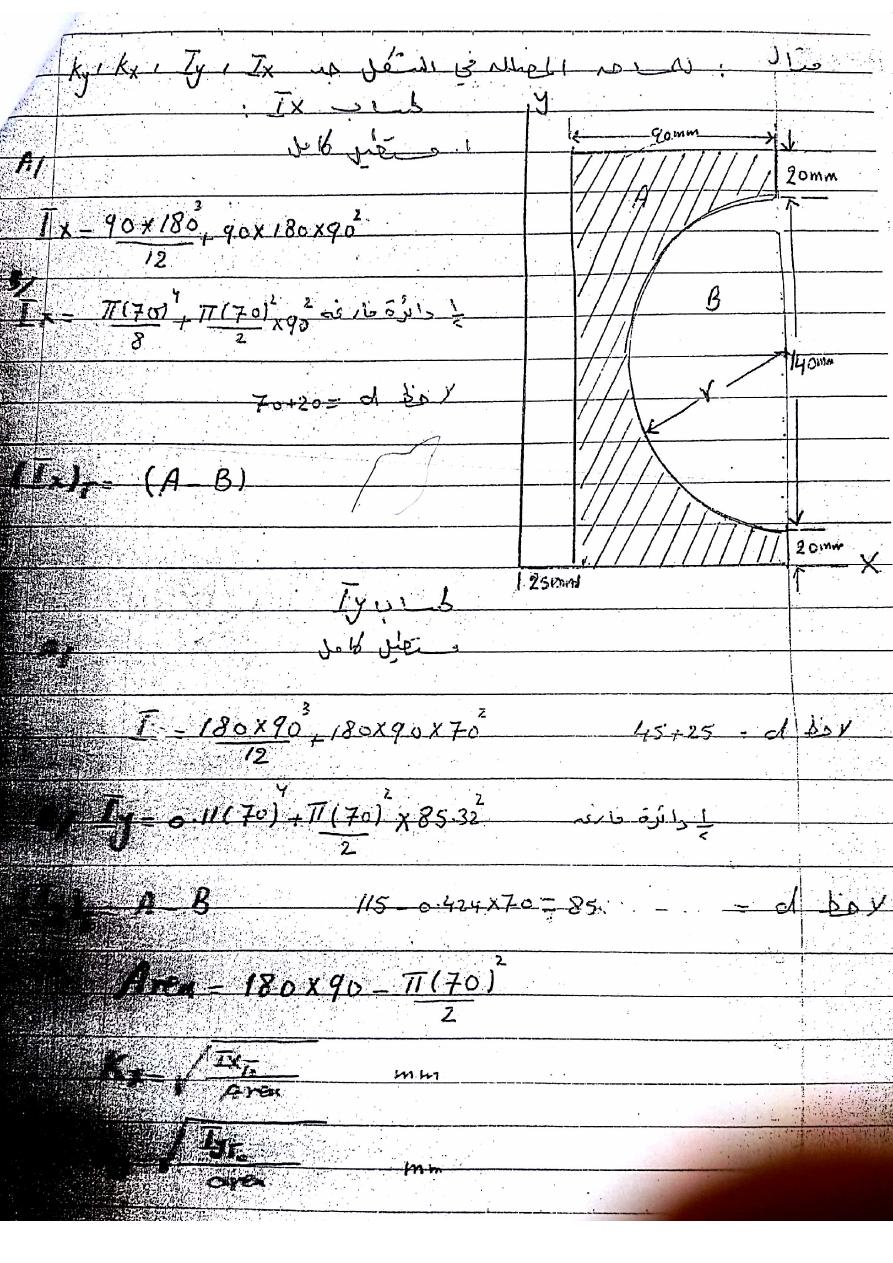 مثال : للمساحه المضلله في الشكل جد Ky , Kx , Īy , Īx
حساب Īx :
1. مستطيل كامل
A/
Īx = 90×180³/12 + 90×180×90²
B/
Īx = π(70)⁴/8 + π(70)²/2 ×90² ½ دائرة فارغه
لاحظ d = 70+20
(Īx)T = (A - B)
Y
90mm
20mm
A
B
140mm
r
20mm
X
25mm
حساب Īy
مستطيل كامل
A/
Ī = 180×90³/12 + 180×90×70² لاحظ d = 45+25
B/ Īy = 0.11(70)⁴ + π(70)²/2 × 85.32² ½ دائرة فارغه
= A - B 115 - 0.424×70 = 85. - ... = d لاحظ
Area = 180×90 - π(70)²/2
Kx = √ĪxT/Area mm
= √ĪyT/area mm